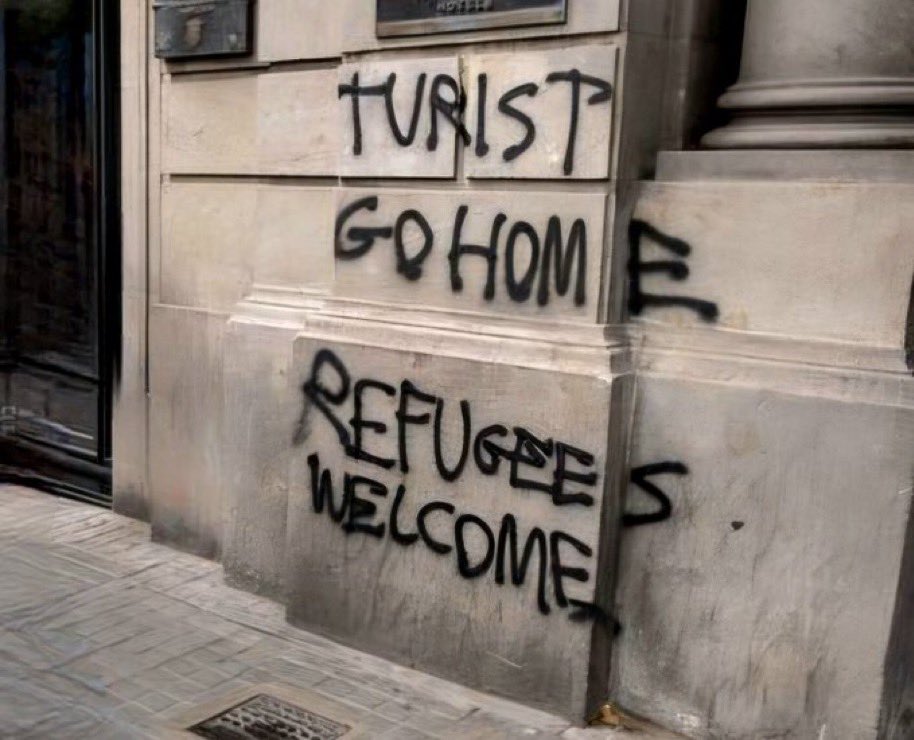 TURIST
GO HOME
REFUGEES
WELCOME